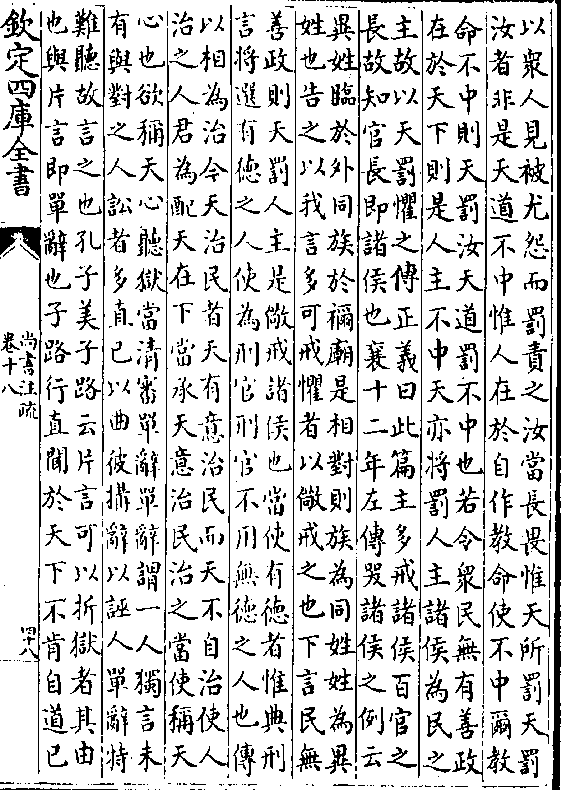 以衆人見被尤怨而罰責之汝當長畏惟天所罰天罰
汝者非是天道不中惟人在於自作教命使不中爾教
命不中則天罰汝天道罰不中也若令衆民無有善政
在於天下則是人主不中天亦將罰人主諸侯為民之
主故以天罰懼之傳正義曰此篇主多戒諸侯百官之
長故知官長即諸侯也襄十二年左傳哭諸侯之例云
異姓臨於外同族於禰廟是相對則族為同姓姓為異
姓也告之以我言多可戒懼者以儆戒之也下言民無
善政則天罰人主是儆戒諸侯也當使有德者惟典刑
言將選有德之人使為刑官刑官不用無德之人也傳
以相為治今天治民者天有意治民而天不自治使人
治之人君為配天在下當承天意治民治之當使稱天
心也欲稱天心聽獄當清審單辭單辭謂一人獨言未
有與對之人訟者多直已以曲彼搆辭以誣人單辭特
難聽故言之也孔子美子路云片言可以折獄者其由
也與片言即單辭也子路行直聞於天下不肯自道已
欽定四庫全書
尚書注疏
卷十八
四八